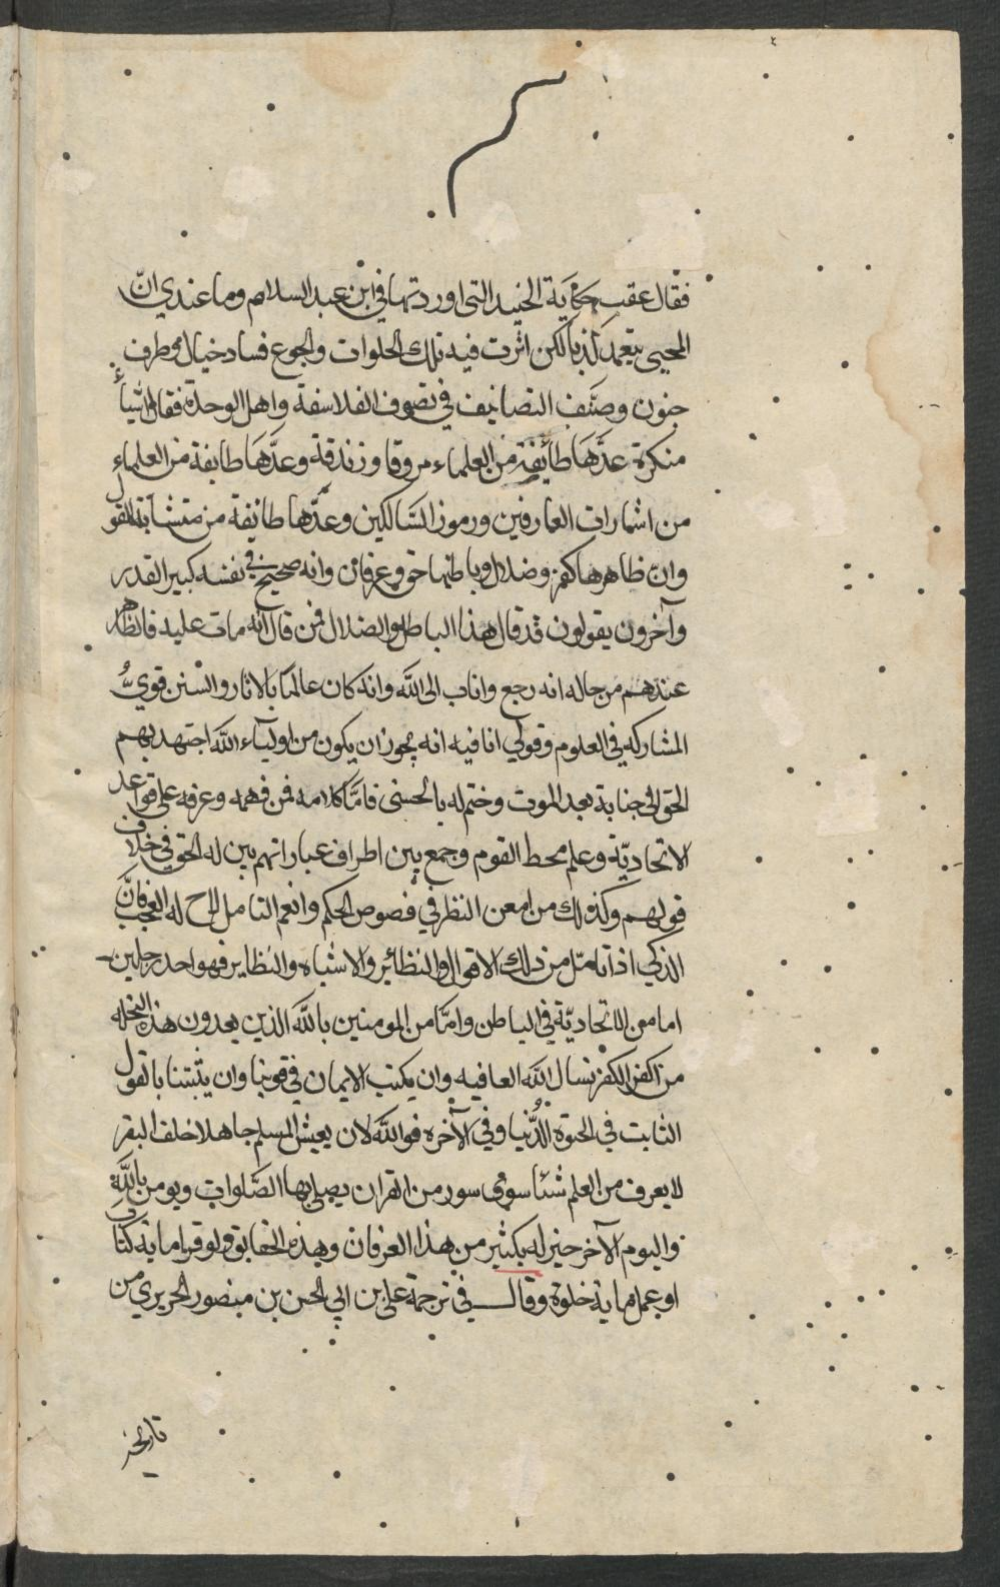 فقال عقب حكاية الجنيد التي اوردتها في ابن عبد السلام وما عندي انّ
المحيى تعمد كذبا لكن اثرت فيه تلك الخلوات والجوع فساد خيال وطرف
جنون وصنف التصانيف في تصوف الفلاسفة واهل الوحدة فقال اشيأ
منكرة عدَّها طائفة من العلماء مروقا وزندقة وعدَّها طايفة من العلماء
من اشارات العارفين ورموز السَّالكين وعدَّها طائفة من متشابه القول
وان ظاهرها كفر وضلال وباطنها حق وعرفان وانه صحيح في نفسه كبير القدر
وآخرون يقولون قد قال هذا الباطل والضلال فمن قال انه مات عليه فالظاهر
عندهم من حاله انه رجع واناب الى الله وانه كان عالما بالاثار والسنن قويُّ
المشاركه في العلوم وقولي انا فيه انه يجوز ان يكون من اولياء الله اجتهد بهم
الحق الى جنابة بعد الموت وختم له بالحسنى فامَّا كلامه فمن فهمه وعرفه على قواعد
الاتحاديّة وعلم محط القوم وجمع بين اطراف عباراتهم بين له الحق في خلاف
قولهم وكذلك من امعن النظر في فصوص الحكم وانعم التامل لاح له العجب فانَّ
الذكي اذا تامّل من ذلك الاقوال والنظائر والاشباه والنظاير فهو احد رجلين
اما من الاتحاديّة في الباطن وامَّا من المومنين بالله الذين يعدون هذه النحله
من اكفر الكفر نسال الله العافيه وان يكتب الايمان في قوبنا وان يثبتنا بالقول
الثابت في الحيوة الدُّنيا وفي الآخره فوالله لان يعيش المسلم جاهلا خلف البقر
لا يعرف من العلم شئا سوى سور من القران يصلي بها الصَّلوات ويومن باللَّهِ
واليوم الآخر خير له بكثير من هذا العرفان وهذه الحقايق ولو قرا ماية كتاب
او عمل ماية خلوة وقال في ترجمة علي بن ابي الحسن بن منصور الحريري من
تاريخه